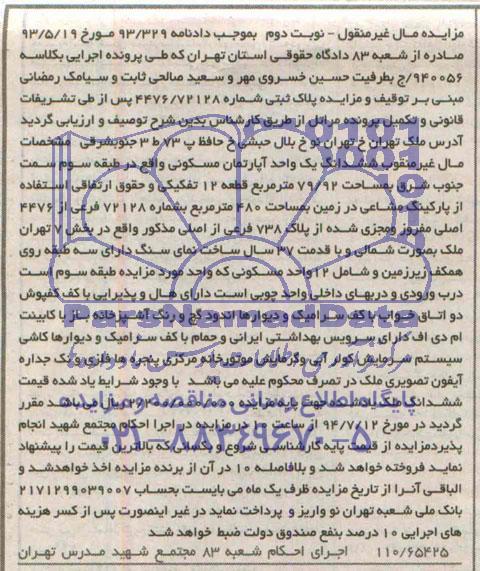 مزایده مال غیرمنقول - نوبت دوم بموجب دادنامه ۹۳/۳۲۹ مورخ ۹۳/۵/۱۹
صادره از شعبه ۸۳ دادگاه حقوقی استان تهران که طی پرونده اجرایی بکلاسه
۹۴۰۰۵۶/ج بطرفیت حسین خسروی مهر و سعید صالحی ثابت و سیامک رمضانی
مبنی بر توقیف و مزایده پلاک ثبتی شماره ۴۴۷۶/۷۲۱۲۸ پس از طی تشریفات
قانونی و تکمیل پرونده مراتل از طریق کارشناس بدین شرح توصیف و ارزیابی گردید
آدرس ملک تهران خ تهران نو خ بلال حبشی خ حافظ پ ۷۳ ط ۳ جنوبشرقی مشخصات
مال غیرمنقوب ششدانگ یک واحد آپارتمان مسکونی واقع در طبقه سوم سمت
جنوب شرق بمساحت ۷۹/۹۲ مترمربع قطعه ۱۲ تفکیکی و حقوق ارتفاقی استفاده
از پارکینگ مشاعی در زمین بمساحت ۴۸۰ مترمربع بشماره ۷۲۱۲۸ فرعی از ۴۴۷۶
اصلی مفروز ومجزی شده از پلاک ۷۳۸ فرعی از اصلی مذکور واقع در بخش ۷ تهران
ملک بصورت شمالی و با قدمت ۳۷ سال ساخت نمای سنگ دارای سه طبقه روی
همکف زیرزمین و شامل ۱۲ واحد مسکونی که واحد مورد مزایده طبقه سوم است
درب ورودی و دربهای داخلی واحد چوبی است دارای هال و پذیرایی با کف کفپوش
دو اتاق خواب با کف سرامیک و دیوارها اندود گچ و رنگ آشپزخانه ساز با کابینت
ام دی اف دارای سرویس بهداشتی ایرانی و حمام با کف سرامیک و دیوارها کاشی
سیستم سرمایش کولر آبی وگرمایش موتورخانه مرکزی پنجره ها فلزی و تک جداره
آیفون تصویری ملک در تصرف محکوم علیه می باشد با وجود شرایط یاد شده قیمت
ششدانگ ملک یاد شده جهت پایه مزایده ریال می باشد مقرر
گردید در مورخ ۹۴/۷/۱۲ از ساعت ۱۰ در مزایده در اجرا احکام مجتمع شهید انجام
پذیردمزایده از قیمت پایه کارشناسی شروع و بکسانی که بالاترین قیمت را پیشنهاد
نماید فروخته خواهد شد و بلافاصله ۱۰ در آن از برنده مزایده اخذ خواهدشد و
الباقی آنرا از تاریخ مزایده ظرف یک ماه می بایست بحساب ۲۱۷۱۲۹۹۰۳۹۰۰۷
بانک ملی شعبه تهران نو واریز و پرداخت نماید در غیر اینصورت پس از کسر هزینه
های اجرایی ۱۰ درصد بنفع صندوق دولت ضبط خواهد شد
۱۱۰/۶۵۴۲۵ اجرای احکام شعبه ۸۳ مجتمع شهید مدرس تهران
ParsNamadData
پایگاه اطلاع رسانی مناقصه و مزایده
۰۲۱-۸۸۳۴۹۶۷۰-۵